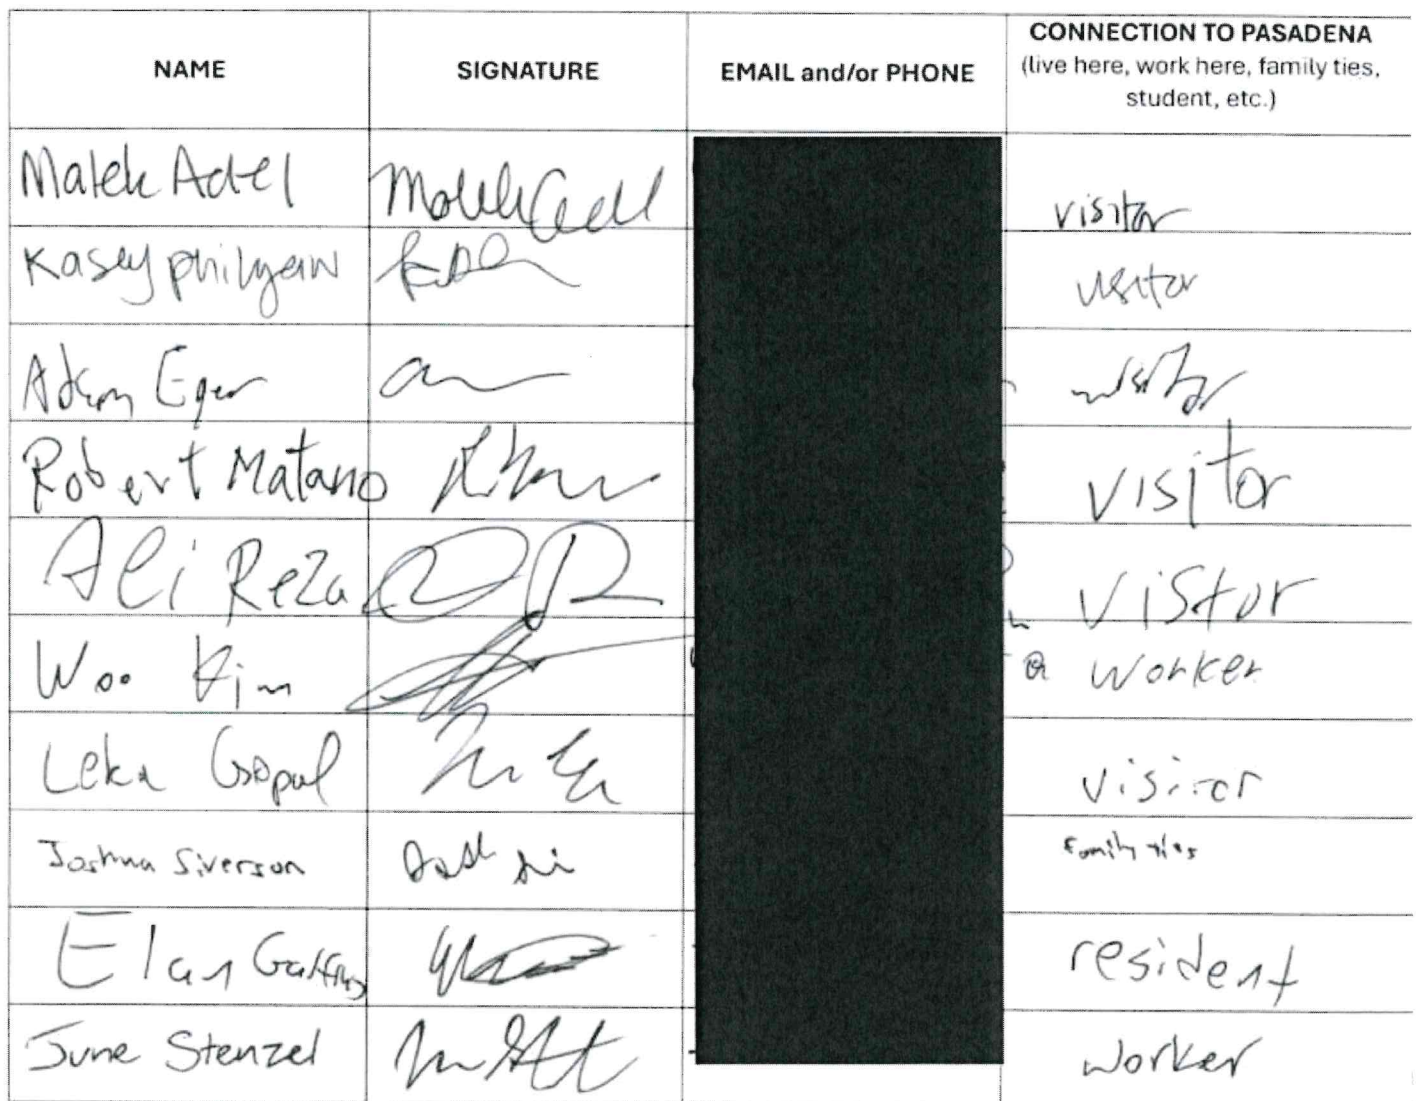 NAME
SIGNATURE
EMAIL and/or PHONE
CONNECTION TO PASADENA
(live here, work here, family ties,
student, etc.)
Malek Adel
visitor
Kasey philyaw
visitor
Adam Eger
visitor
Robert Matano
visitor
Ali Reza
visitor
Woo Kim
worker
Leka Gopal
visitor
Joshua Siverson
family ties
Elan
resident
June Stenzel
worker